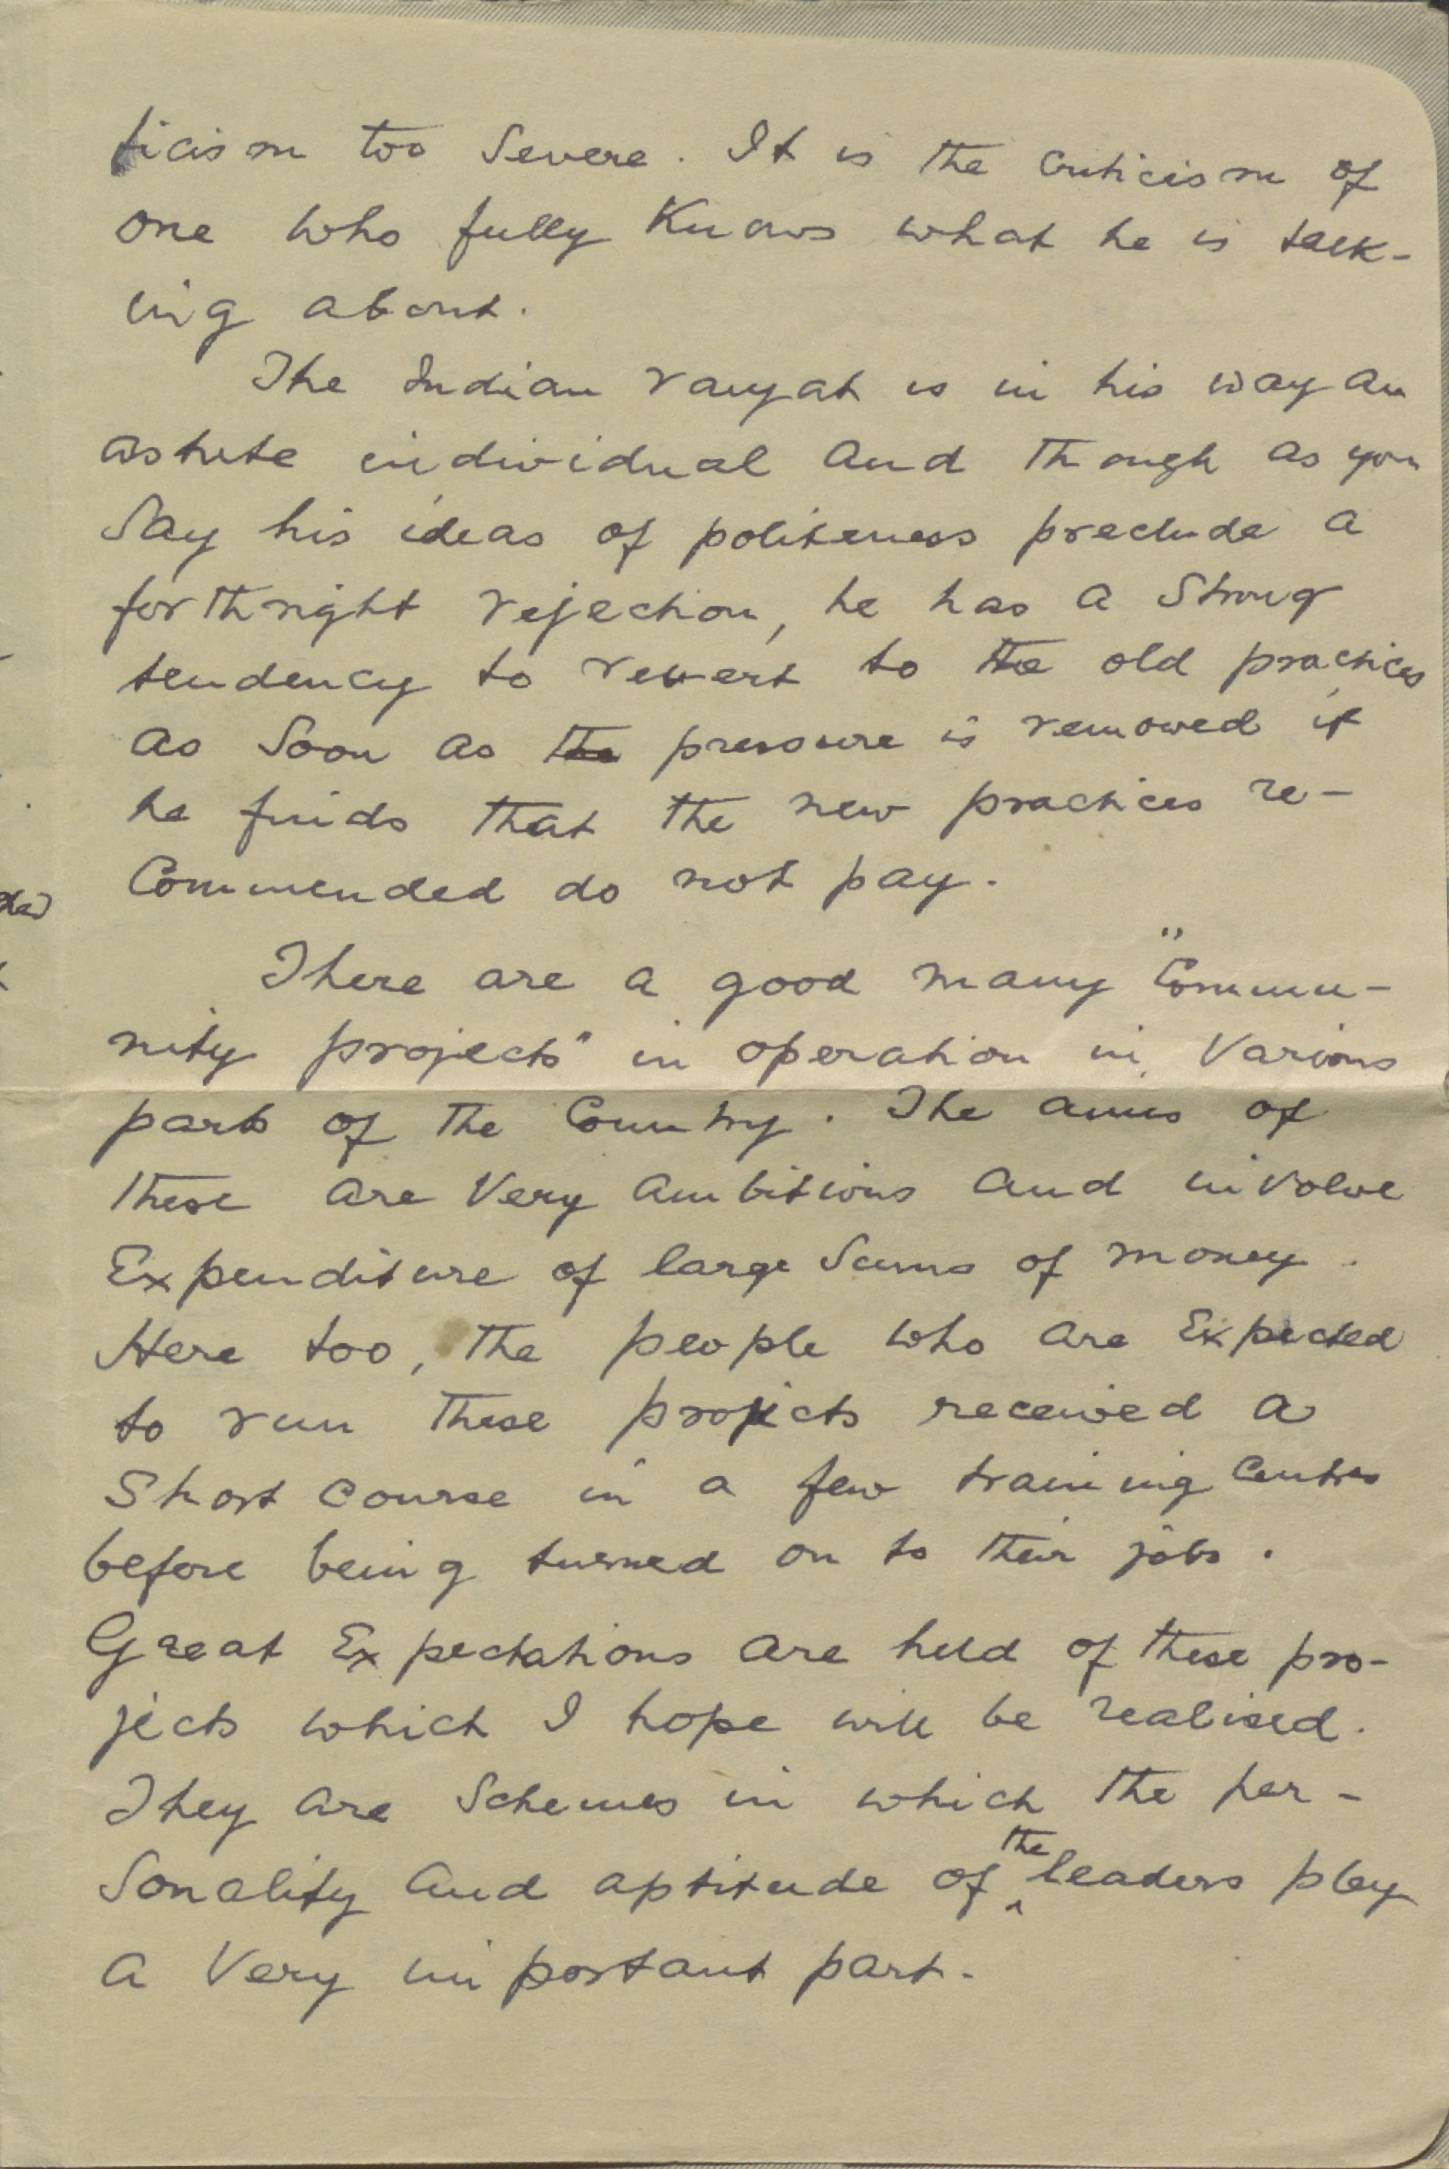 ticism too severe. It is the criticism of
one who fully knows what he is talk-
ing about.
The Indian raiyat is in his way an
astute individual and though as you
say his ideas of politeness preclude a
forthright rejection, he has a strong
tendency to revert to the old practices
as soon as the pressure is removed if
he finds that the new practices re-
commended do not pay.
There are a good many "Commu-
nity projects" in operation in various
parts of the Country. The aims of
these are very ambitious and involve
Expenditure of large sums of money.
Here too, the people who are Expected
to run these projects received a
short course in a few training centres
before being turned on to their jobs.
Great Expectations are held of these pro-
jects which I hope will be realised.
They are schemes in which the per-
sonality and aptitude of the leaders play
a very important part.